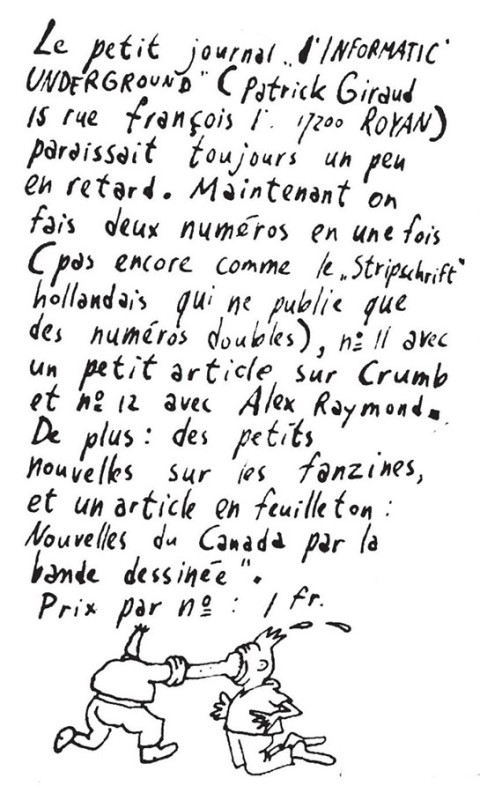 Le petit journal „l'INFORMATIC
UNDERGROUND" (Patrick Giraud
15 rue françois 1. 17200 ROYAN)
paraissait toujours un peu
en retard. Maintenant on
fais deux numéros en une fois
(pas encore comme le „Stripschrift"
hollandais qui ne publie que
des numéros doubles), nº 11 avec
un petit article sur Crumb
et nº 12 avec Alex Raymond.
De plus: des petits
nouvelles sur les fanzines,
et un article en feuilleton:
Nouvelles du Canada par la
bande dessinée".
Prix par nº: 1 fr.